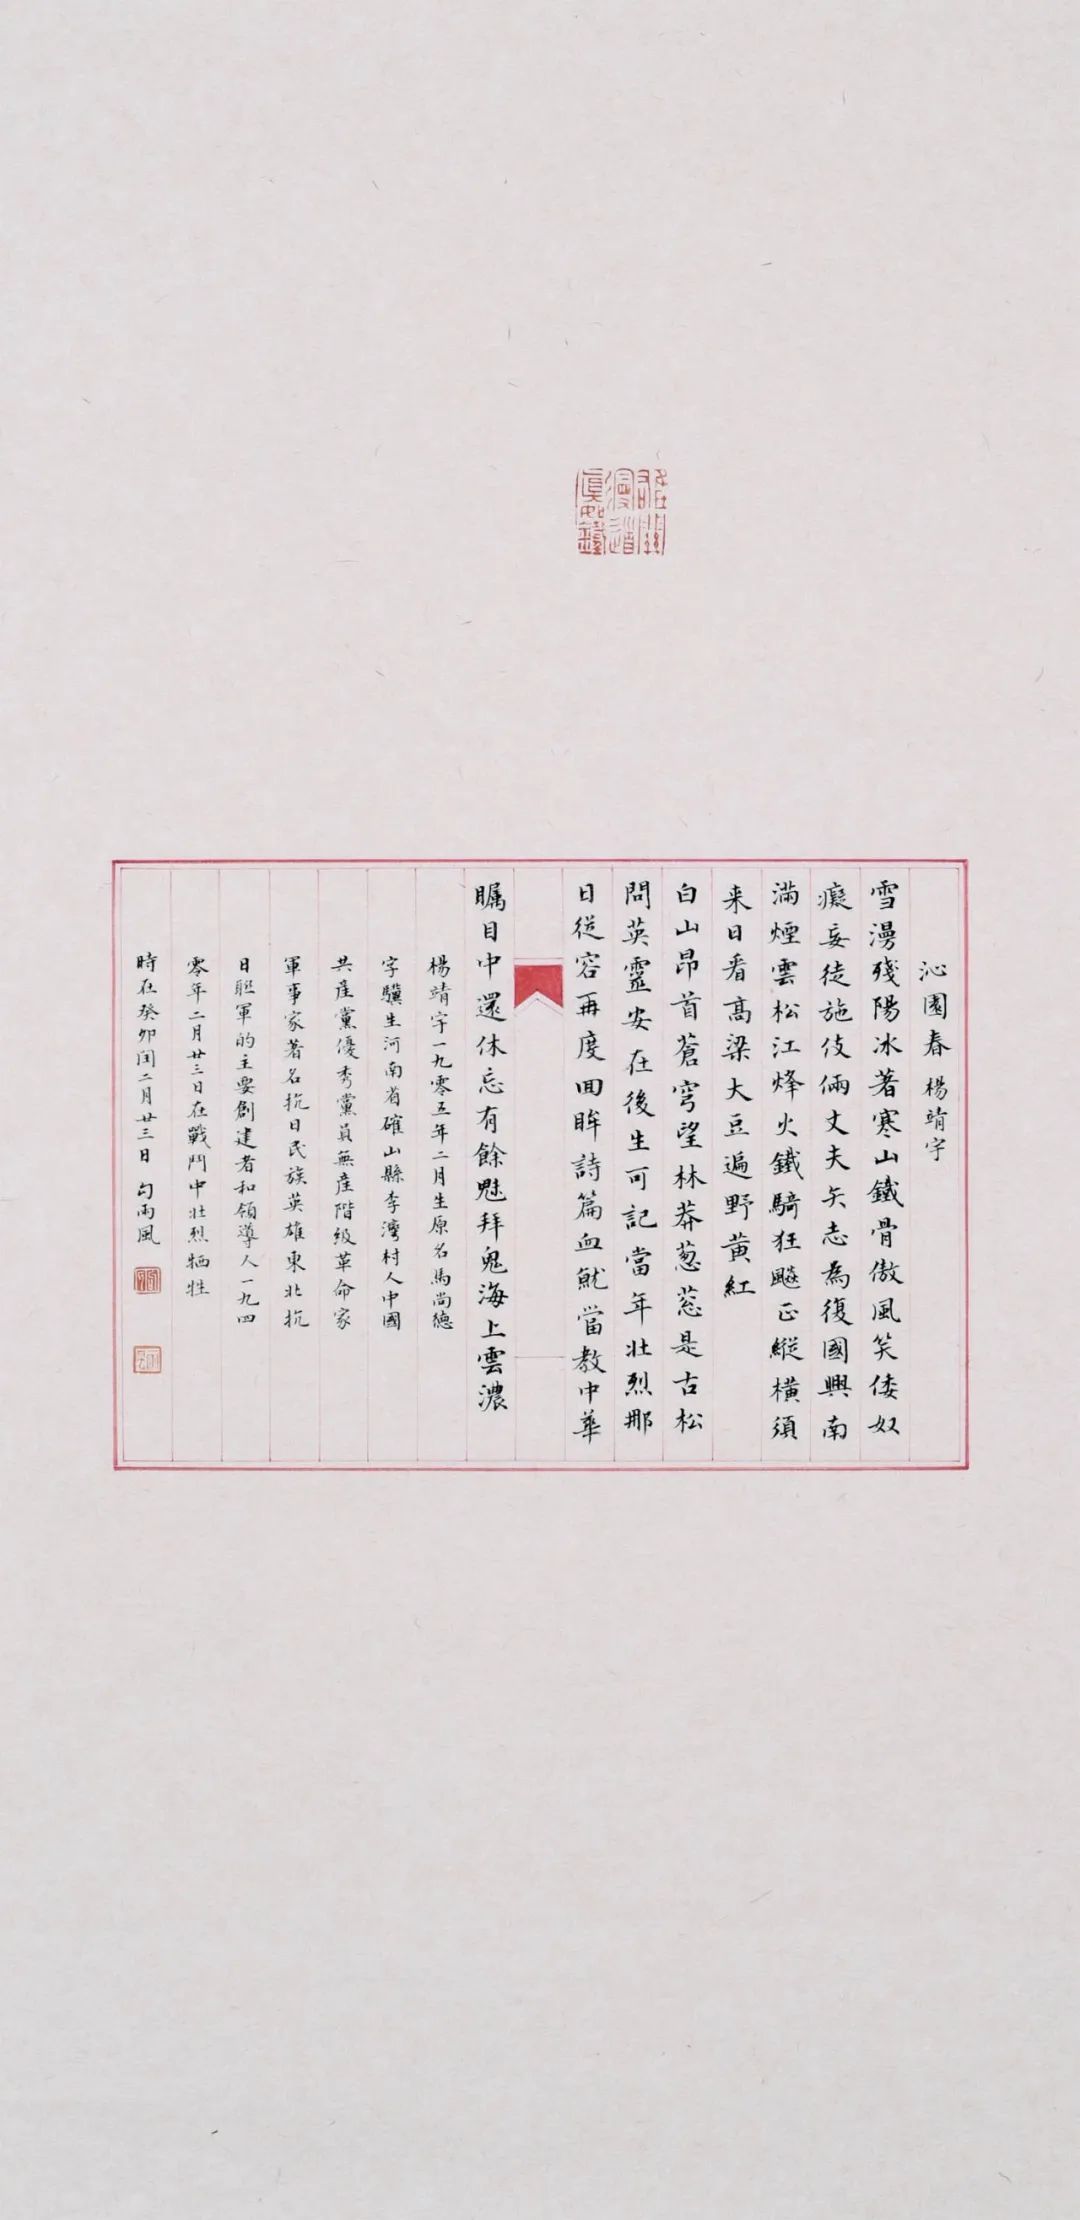 雄關漫道真如鐵
沁園春 楊靖宇
雪漫殘陽冰著寒山鐵骨傲風笑倭奴
癡妄徒施伎倆丈夫矢志為復國興南
滿煙雲松江烽火鐵騎狂飈正縱橫須
来日看高梁大豆遍野黄紅
白山昂首蒼穹望林莽葱蘢是古松
問英靈安在後生可記當年壯烈那
日從容再度回眸詩篇血觥當教中華
矚目中還休忘有餘魁拜鬼海上雲濃
楊靖宇一九零五年二月生原名馬尚德
字驥生河南省確山縣李灣村人中國
共産黨優秀黨員無産階級革命家
軍事家著名抗日民族英雄東北抗
日聯軍的主要創建者和領導人一九四
零年二月廿三日在戰鬥中壯烈牺牲
時在癸卯闰二月廿三日 句雨風